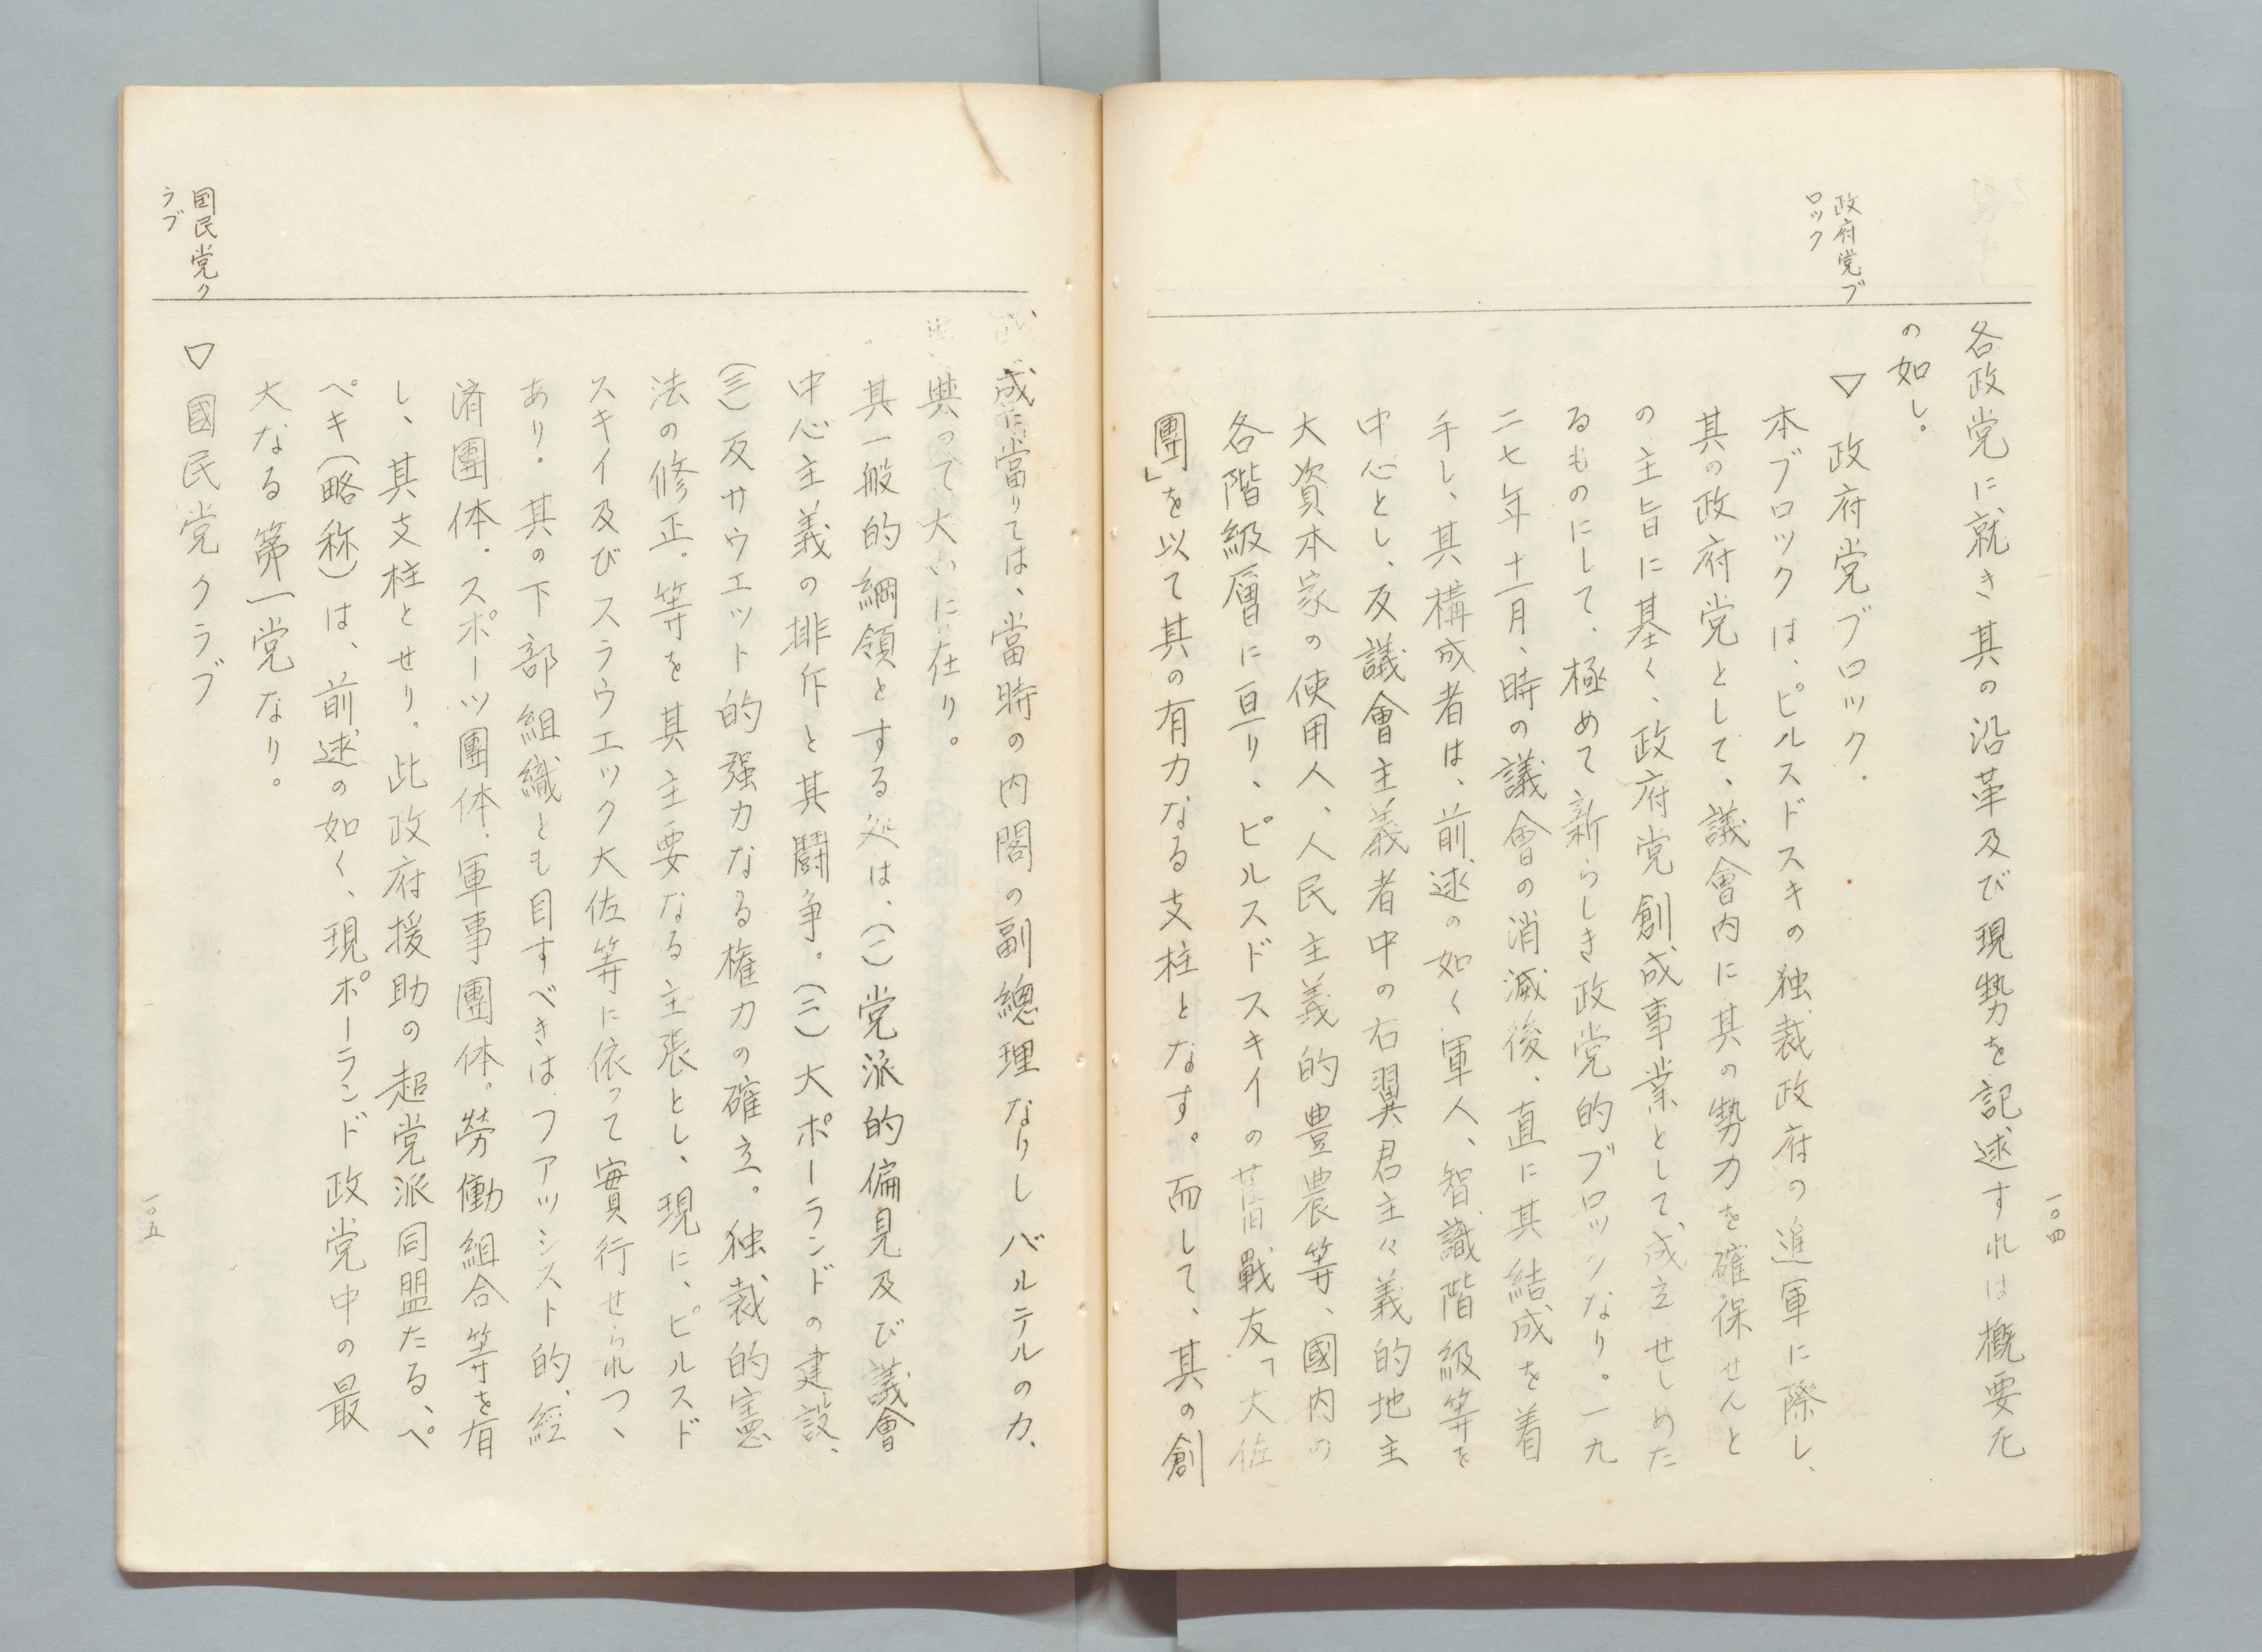 一〇四
政府党ブ
ロック
各政党に就き其の沿革及び現勢を記述すれは概要左
の如し。
▽ 政府党ブロック.
本ブロックは、ピルスドスキの独裁政府の進軍に際し、
其の政府党として、議會内に其の勢力を確保せんと
の主旨に基く、政府党創成事業として成立せしめた
るものにして、極めて新らしき政党的ブロックなり。一九
二七年十一月、時の議會の消滅後、直に其結成を着
手し、其構成者は、前述の如く軍人、智識階級等を
中心とし、反議會主義者中の右翼君主々義的地主
大資本家の使用人、人民主義的豊農等、國内の
各階級層に亘り、ピルスドスキイの舊戰友「大佐
團」を以て其の有力なる支柱となす。而して、其の創
成に當りては、當時の内閣の副總理なりしバルテルの力、
與って大いに在り。
其一般的綱領とする処は、(一)党派的偏見及び議會
中心主義の排斥と其闘争。(二)大ポーランドの建設、
(三)反サウエット的强力なる権力の確立。独裁的憲
法の修正。等を其主要なる主張とし、現に、ピルスド
スキイ及びスラウエック大佐等に依って實行せられつ、
あり.其の下部組織とも目すべきはファッシスト的、經
済團体.スポーツ團体.軍事團体。勞働組合等を有
し、其支柱とせり。此政府援助の超党派同盟たる、ペ
ペキ(略称)は、前述の如く、現ポーランド政党中の最
大なる第一党なり。
国民党ク
ラブ
▽ 國民党クラブ
一〇五